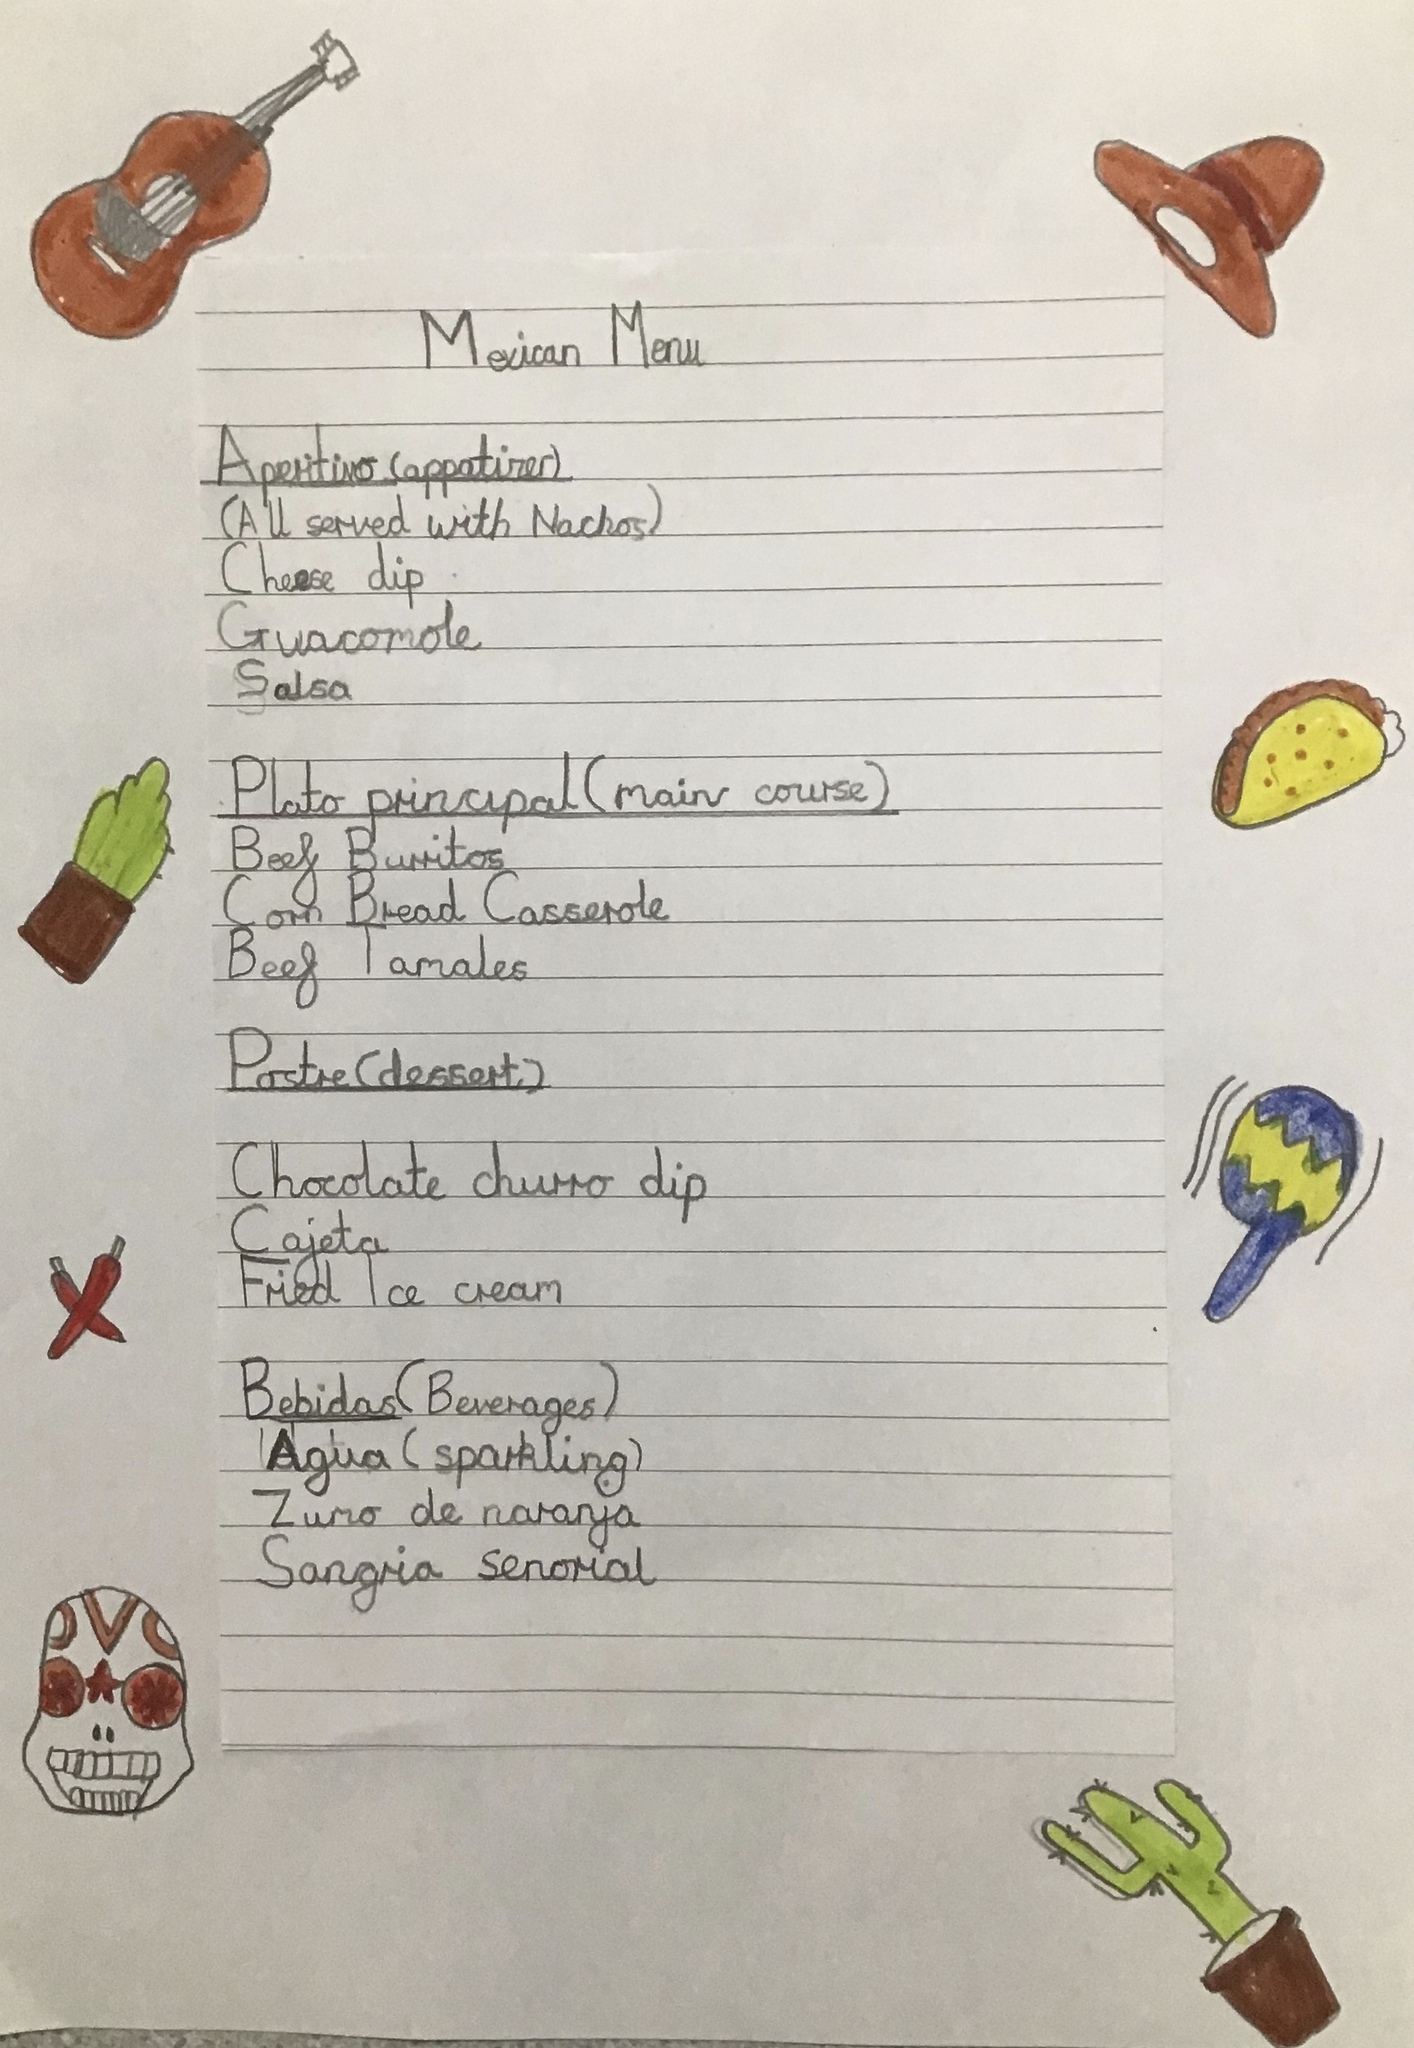 Mexican Menu
Aperitivo (appatizer)
(All served with Nachos)
Cheese dip
Guacomole
Salsa
Plato principal (main course)
Beef Burritos
Corn Bread Casserole
Beef Tamales
Postre (dessert)
Chocolate churro dip
Cajeta
Fried Ice cream
Bebidas (Beverages)
Agua (sparkling)
Zumo de naranja
Sangria senorial